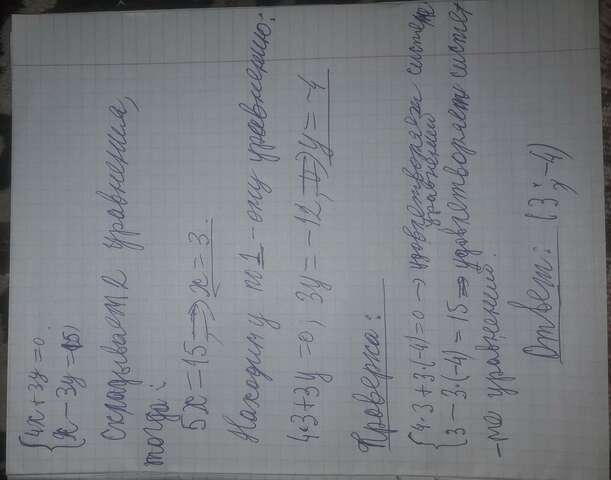 {4x+3y=0.
x-3y=15;
складываете уравнения,
тогда:
5x=15,⇒x=3.
Находим y по 1-ому уравнению:
4·3+3y=0, 3y=-12,⇒y=-4
Проверка:
{4·3+3·(-4)=0→удовлетворяет системе
уравнений
3-3·(-4)=15⇒удовлетворяет систе-
-ме уравнений.
Ответ: (3;-4)